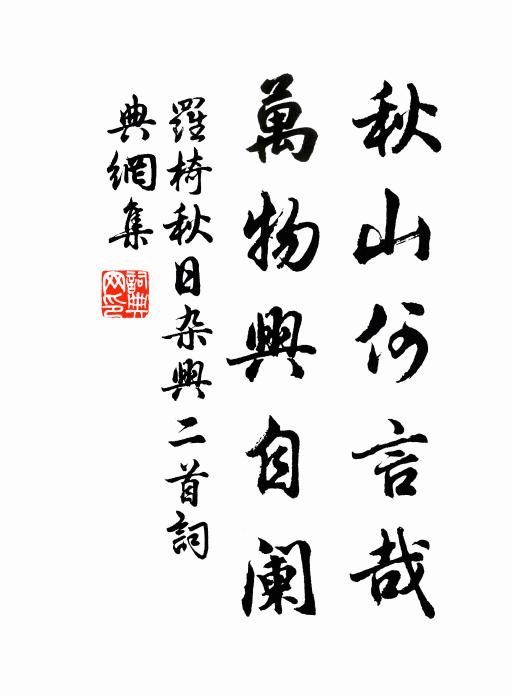 秋山何言哉
萬物興自阑
羅椅秋日杂興二首詞
典網集
詞典网印